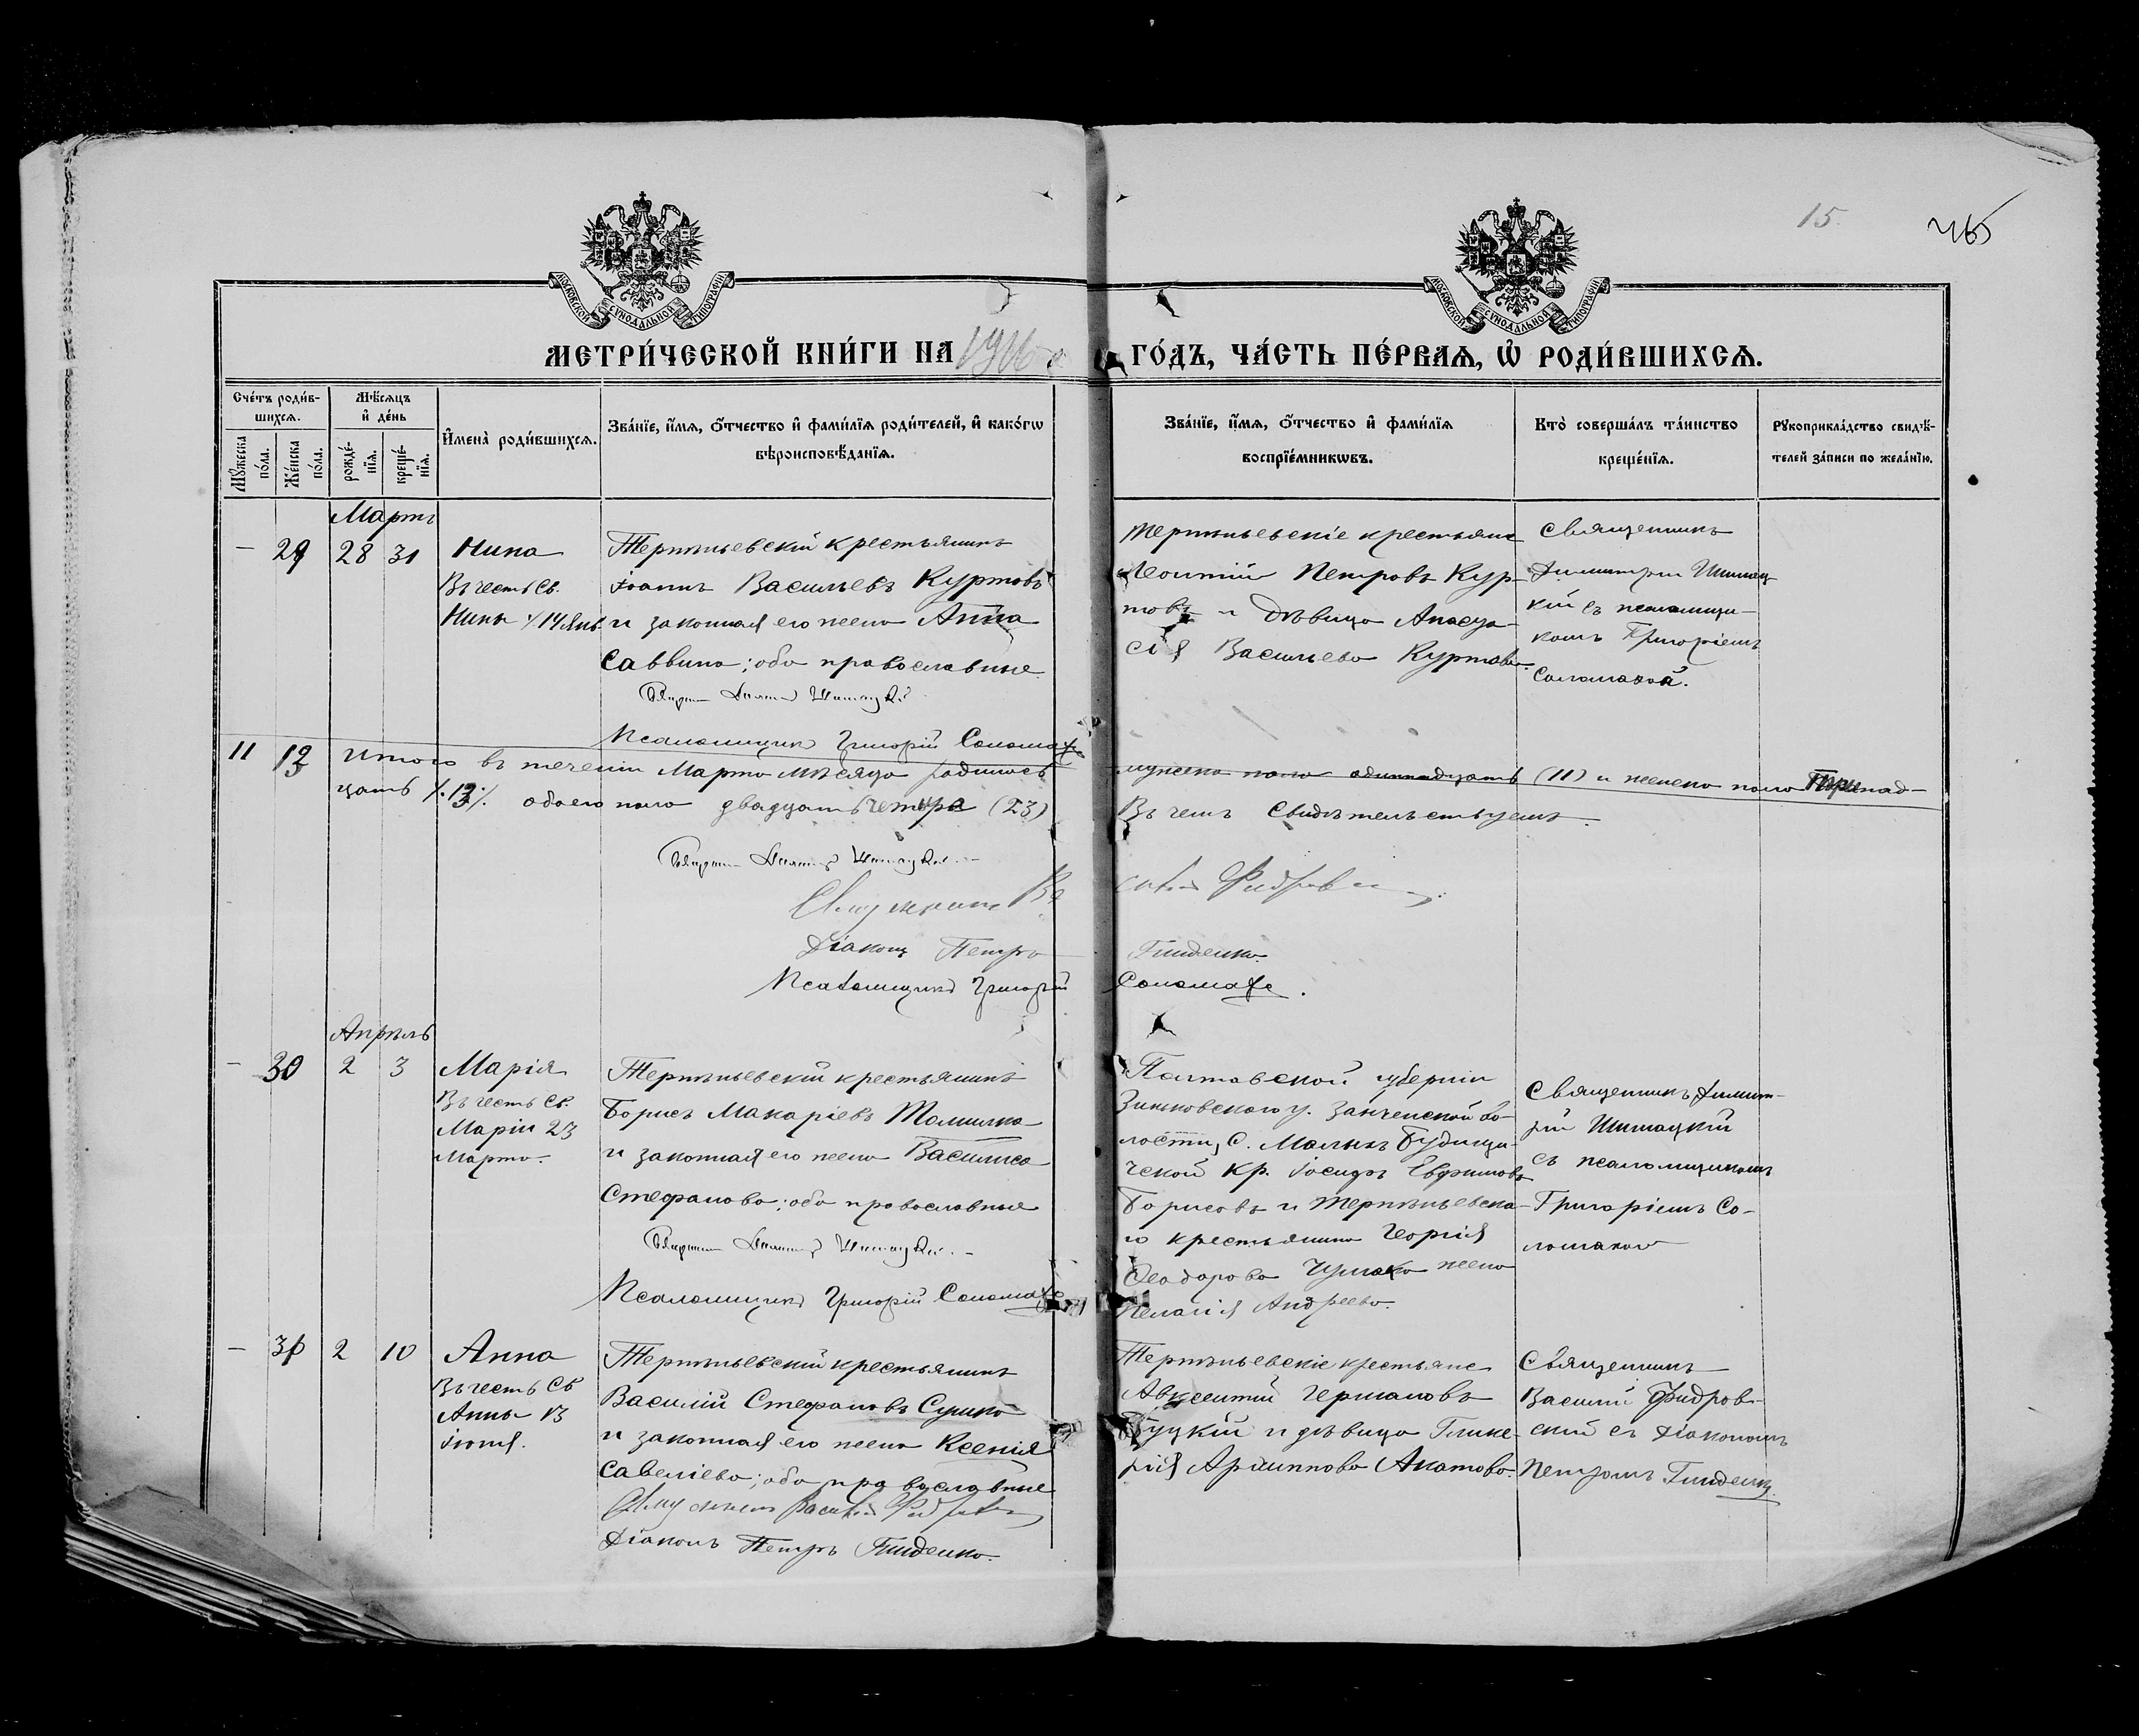 15.
465
МОСКОВСКОЙ СѴНОДАЛЬНОЙ ТИПОГРАФІИ
МОСКОВСКОЙ СѴНОДАЛЬНОЙ ТИПОГРАФІИ
МЕТРИ́ЧЕСКОЙ КНИ́ГИ НА 1916
ГО́ДЪ, ЧА́СТЬ ПЕ́РВАѦ, Ѡ҆ РОДИ́ВШИХСѦ.
Сче́тъ роди́в-
шихсѧ.
Мꙋжеска по́ла.
Же́нска по́ла.
Мѣ́сѧцъ
и҆ де́нь
рожде́-
нїѧ.
креще́-
нїѧ.
И҆мена̀ роди́вшихсѧ.
Зва́нїе, и҆́мѧ, ѻ҆́тчество и҆ фами́лїѧ роди́телей, и҆ како́гѡ
вѣроисповѣ́данїѧ.
Зва́нїе, и҆́мѧ, ѻ҆́тчество и҆ фами́лїѧ
воспрїе́мникѡвъ.
Кто̀ соверша́лъ та́инство
креще́нїѧ.
Рꙋкоприкла́дство свидѣ́-
телей за́писи по жела́нїю.
Мартъ
— 29 28 31
Нина
Въ честь Св.
Нины 14 Янв
Терпѣньевскій крестьянинъ
Іоаннъ Васильевъ Куртовъ
и законная его жена Анна
Саввина; оба православные
Псаломщикъ Григорій Соломаха
Терпѣньевскіе крестьяне
Леонтій Петровъ Кур-
товъ и дѣвица Анаста-
сія Васильева Куртова.
Священникъ
Димитрій Шишац-
кій съ псаломщи-
комъ Григоріемъ
Соломахой.
11 13 Итого въ теченіи Марта мѣсяца родилось
мужска пола одиннадцать (11) и женска пола Тринад-
цать /.13./. обоего пола двадцать четыре (23)
Въ чемъ свидѣтельствуемъ.
Діаконъ Петръ Гниденко.
Псаломщикъ Григорій Соломаха.
Апрѣль
— 30 2 3
Марія
Въ честь Св.
Маріи 23
Марта.
Терпѣньевскій крестьянинъ
Борисъ Макаріевъ Толмачъ
и законная его жена Василиса
Стефанова; оба православные
Псаломщикъ Григорій Соломаха
Полтавской губерніи
Зиньковскаго у. во-
лости, С. Малыхъ Будищъ
кр. Іосифъ Евфимовъ
Борисовъ и Терпѣньевска-
го крестьянина Георгія
Ѳеодорова жена
Пелагія Андреева.
Священникъ Димит-
рій Шишацкій
съ псаломщикомъ
Григоріемъ Со-
ломахой
— 31 2 10
Анна
Въ честь Св
Анны 13
Іюня.
Терпѣньевскій крестьянинъ
Василій Стефановъ Сушко
и законная его жена Ксенія
Савеліева; оба православные
Діаконъ Петръ Гниденко.
Терпѣньевскіе крестьяне
Авксентій Германовъ
Буцкій и дѣвица Глике-
рія Архиппова Акатова.
Священникъ
Василій Фидров-
скій съ діакономъ
Петромъ Гниденк.